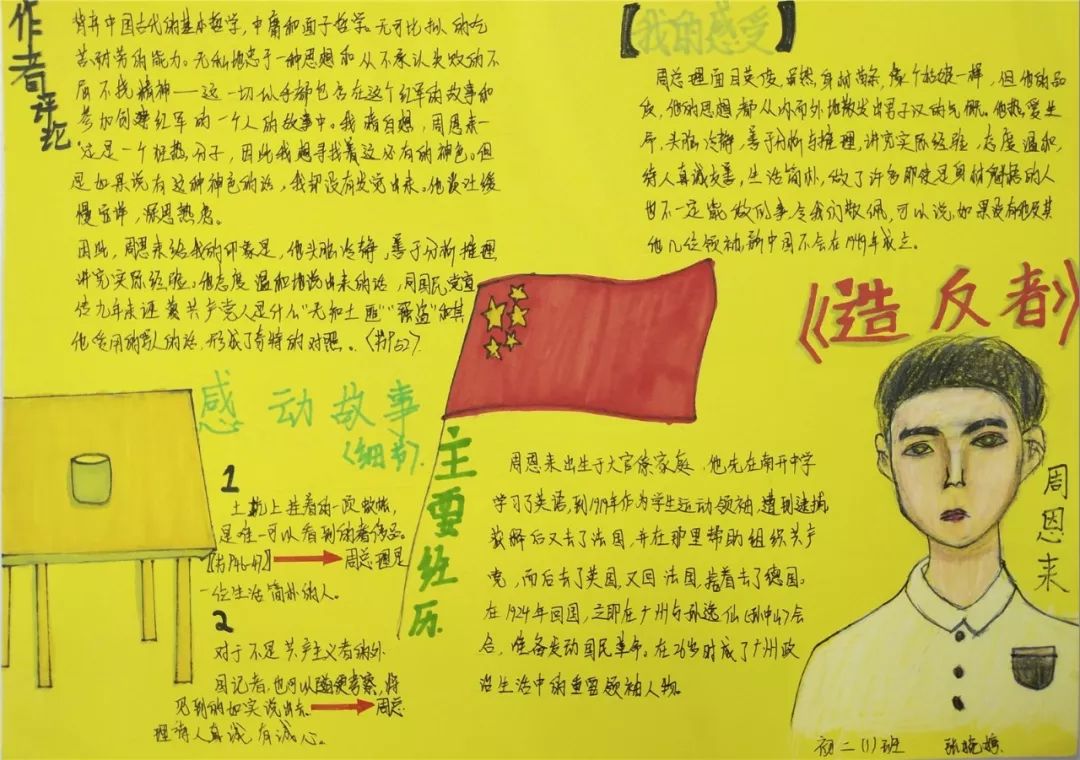 作者评论
背弃中国古代的基本哲学,中庸和面子哲学。无可比拟的吃
苦耐劳的能力。无私地忠于一种思想和从不承认失败的不
屈不挠精神——这一切似乎都包含在这个红军的故事和
参加创建红军的一个人的故事中。我暗自想,周恩来一
定是一个狂热分子,因此我想寻找着这必有的神色。但
是如果说有这种神色的话,我却没有发觉出来。他谈吐缓
慢安详,深思熟虑。
因此,周恩来给我的印象是,他头脑冷静,善于分析推理
讲究实际经验。他态度温和地说出来的话,同国民党宣
传九年来诬蔑共产党人是什么“无知土匪”“强盗”和其
他爱用的骂人的话,形成了奇特的对照。
【我的感受】
周总理面目英俊,虽然身材
一样,但他的品
质,他的思想都从内而外地散发出男子汉的气概。他热爱生
活,头脑冷静,善于分析与推理,讲究实际经验,态度温和,
待人真诚友善,生活简朴,做了许多即使是身材魁梧的人
也不一定能做的事令我们敬佩,可以说,如果没有他及其
他几位领袖,新中国不会在1949年成立。
《造反者》
感动故事
〈细节〉
1
土炕上挂着的一顶蚊帐,
是唯一可以看到的奢侈品。
【书P46-47】
周总理是
一位生活简朴的人。
2
对于不是共产主义者的外
国记者,也可以随便考察,将
见到的如实说出去
周总
理待人真诚,有诚心。
主要经历
周恩来出生于大官僚家庭,他先在南开中学
学习了英语,到1919年作为学生运动领袖,遭到逮捕,
获释后又去了法国,并在那里帮助组织共产
党,而后去了英国,又回法国,接着去了德国。
在1924年回国,立即在广州与孙逸仙(孙中山)会
合,准备发动国民革命。在26岁时成了广州政
治生活中的重要领袖人物。
周恩来
初二(1)班
张晓婷